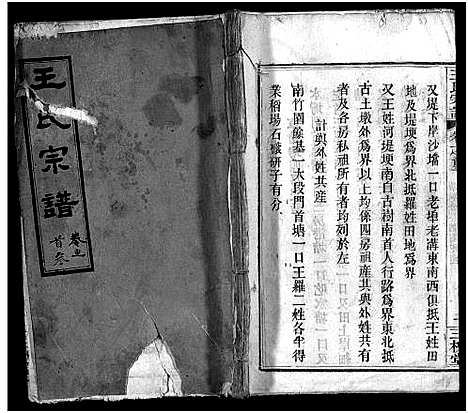 王氏宗譜
卷之
首叁
又堤下岸沙壋一口老埂老溝東南西俱抵王姓田
地及堤埂爲界北抵羅姓田地爲界
又王姓河堤埂南自古樹南首人行路爲界東北抵
古土墩外爲界以上均係四房祖產其與外姓共有
者及各房私祖所有者均列於左
計與外姓共產
南竹園鹼基一大段門首塘一口王羅二姓各半得
業稻場石磙研子有分
三槐堂